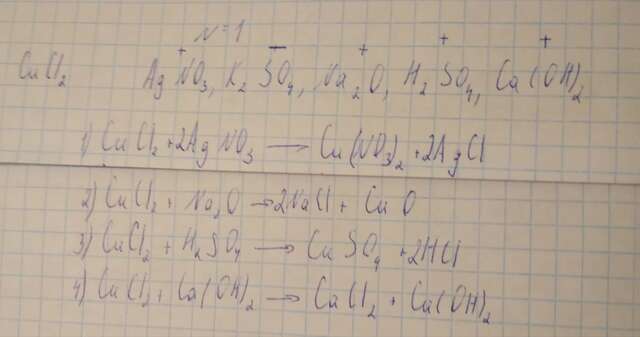 N=1
+ − + + +
CuCl₂ AgNO₃, K₂SO₄, Na₂O, H₂SO₄, Ca(OH)₂
1) CuCl₂ + 2AgNO₃ → Cu(NO₃)₂ + 2AgCl
2) CuCl₂ + Na₂O → 2NaCl + CuO
3) CuCl₂ + H₂SO₄ → CuSO₄ + 2HCl
4) CuCl₂ + Ca(OH)₂ → CaCl₂ + Cu(OH)₂